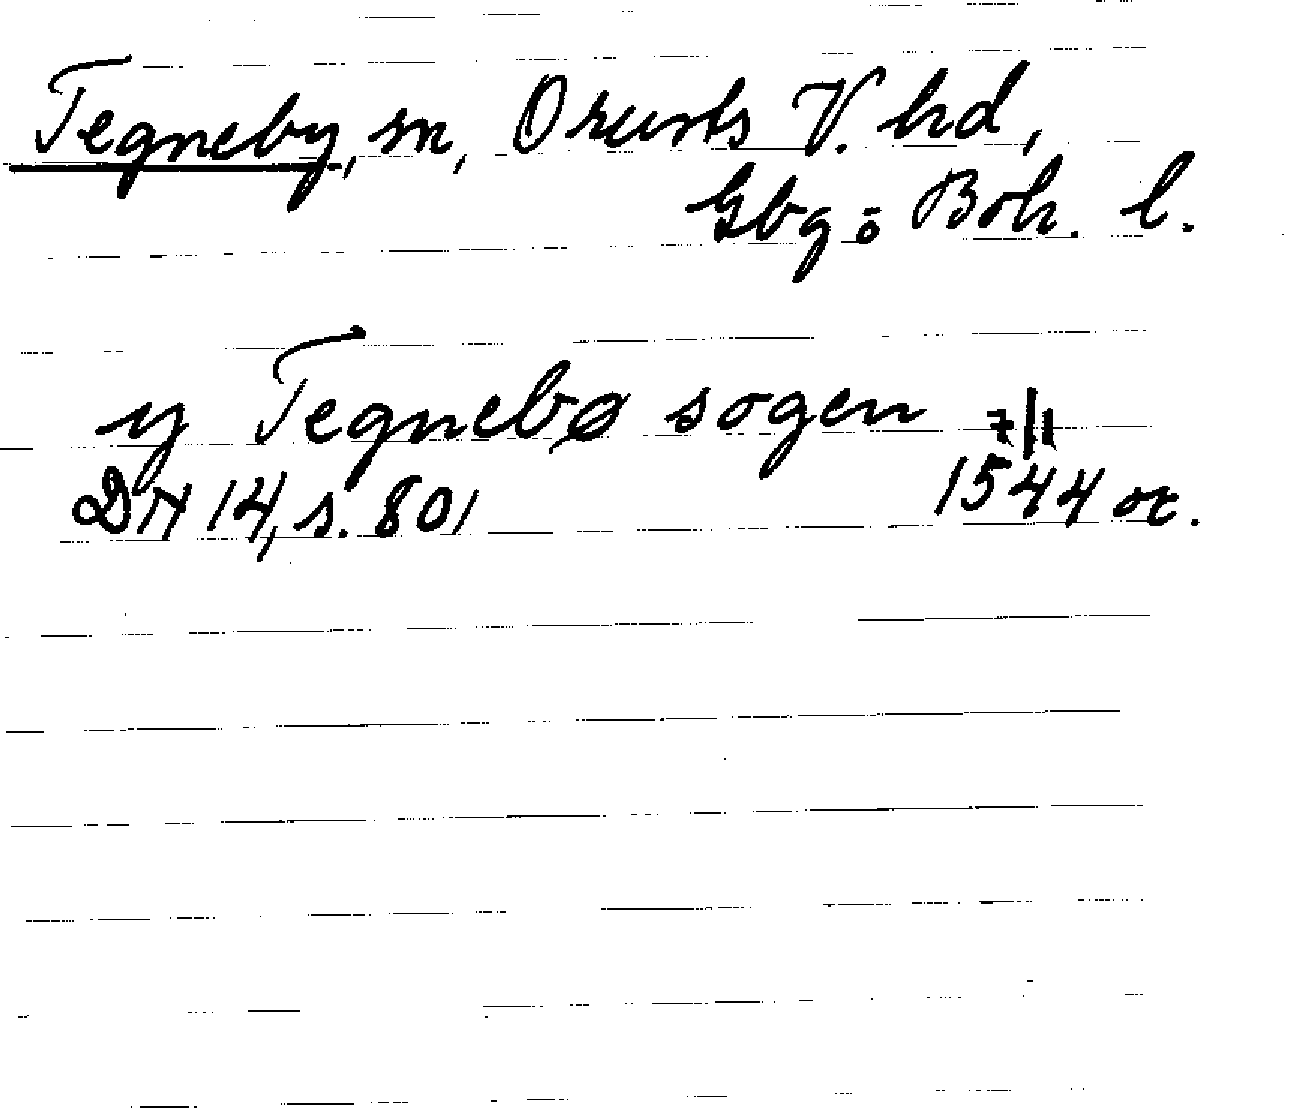 Tegneby, sn, Orusts V. hd,
Gbg o Boh. l.
y Tegnebø sogen 7/1
DN 14, s. 801 1544 or.